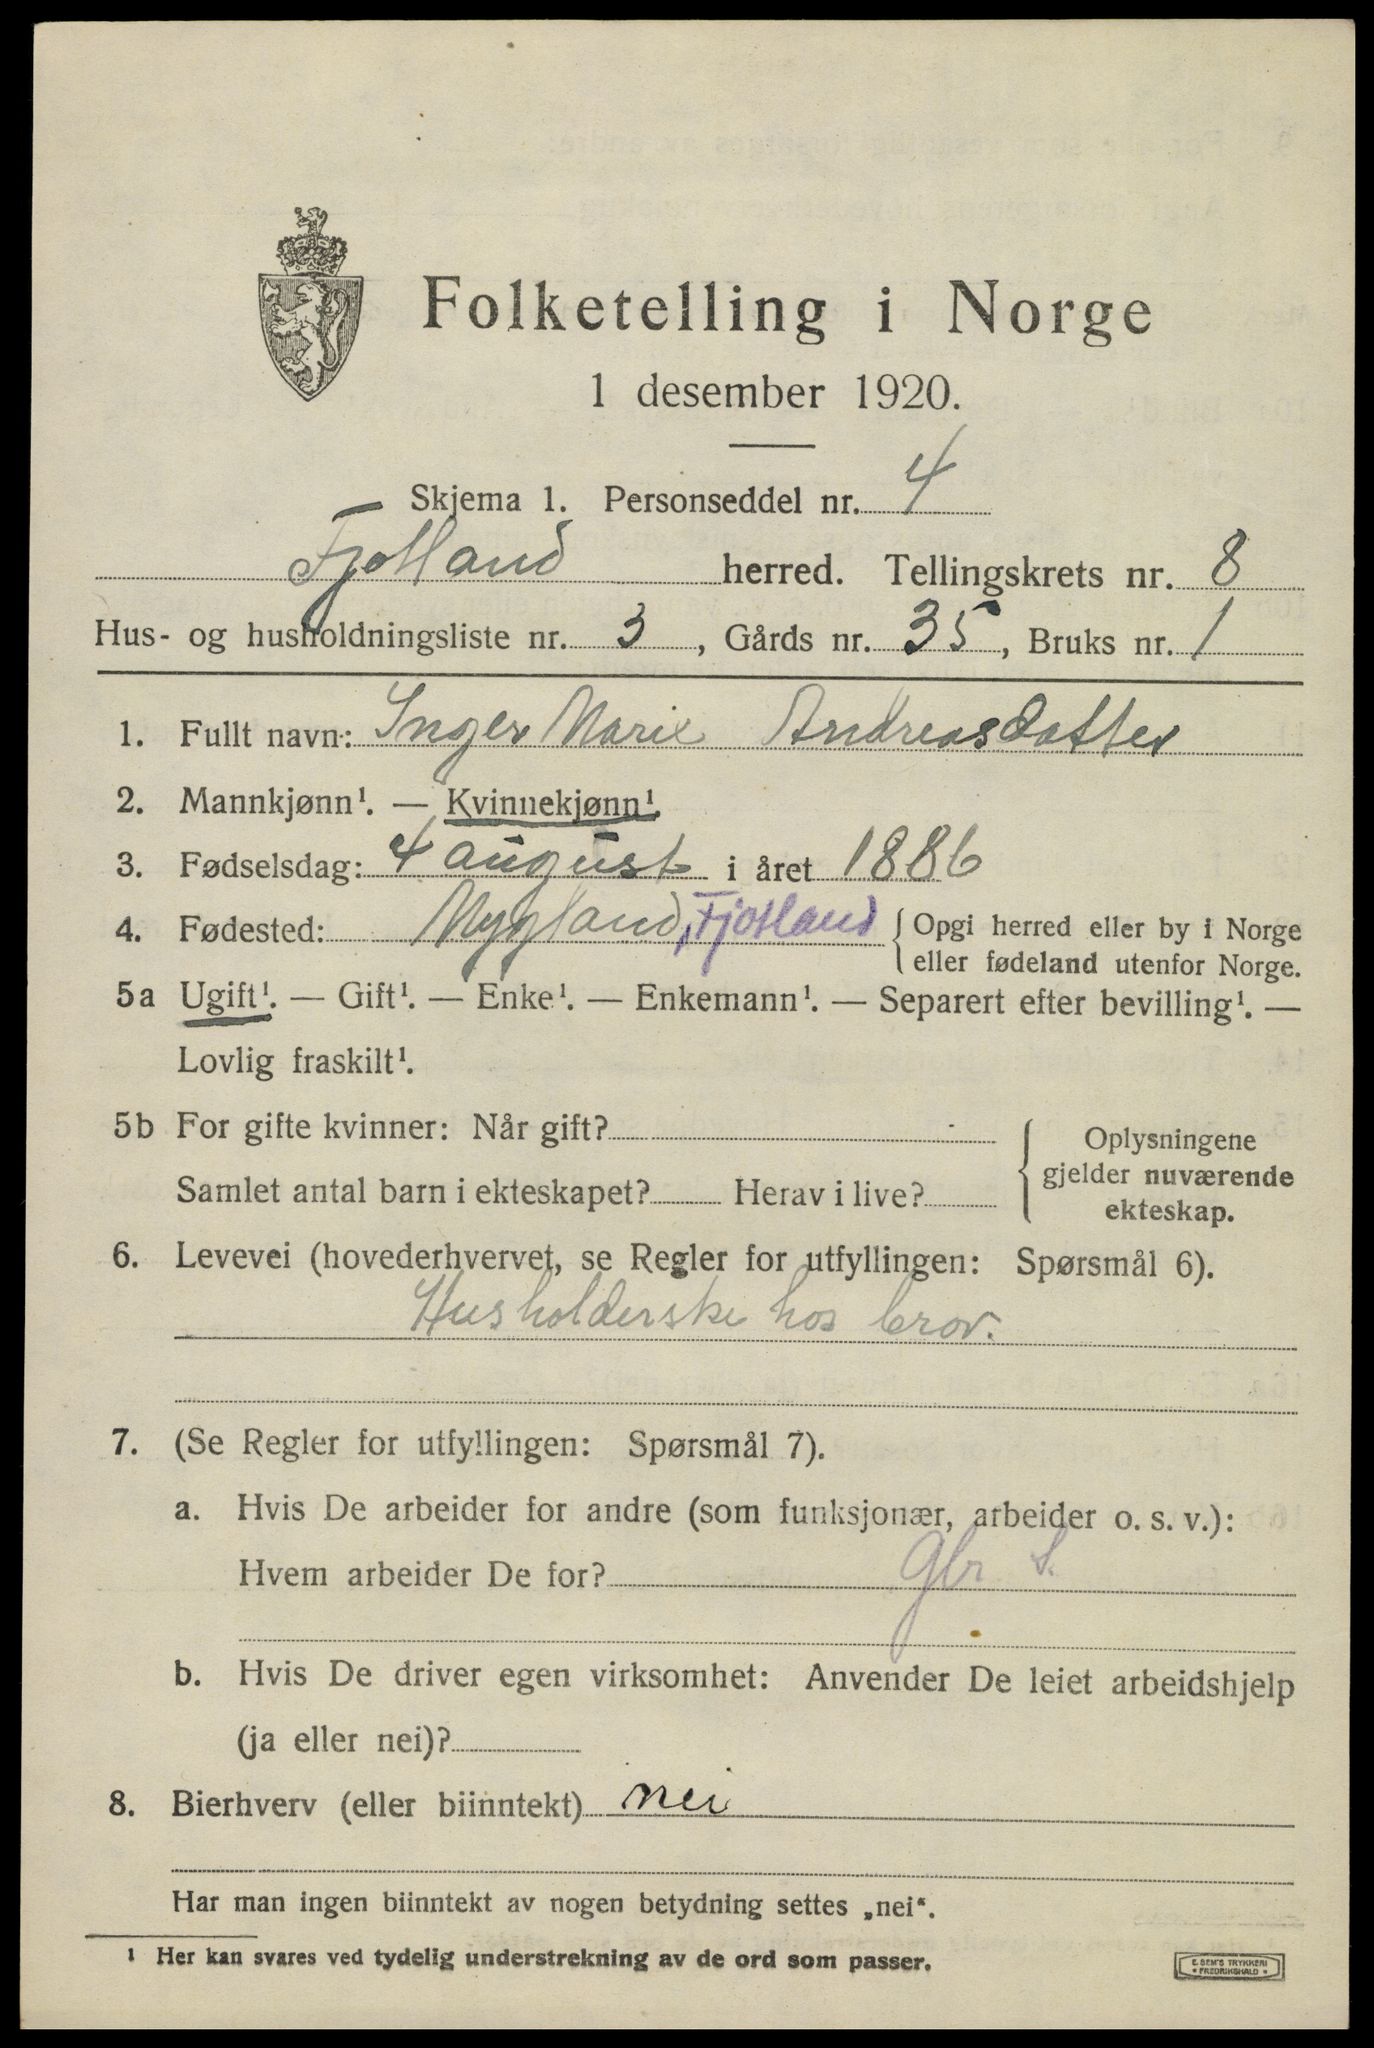 Folketelling i Norge
1 desember 1920.
Skjema 1. Personseddel nr. 4
Fjotland herred. Tellingskrets nr. 8
Hus- og husholdningsliste nr. 3, Gårds nr. 35, Bruks nr. 1
1. Fullt navn: Inger Marie Andreasdatter
2. Mannkjønn¹. — Kvinnekjønn¹.
3. Fødselsdag: 4 august i året 1886
4. Fødested: Nygland, Fjotland { Opgi herred eller by i Norge
eller fødeland utenfor Norge.
5a Ugift¹. — Gift¹. — Enke¹. — Enkemann¹. — Separert efter bevilling¹. —
Lovlig fraskilt¹.
5b For gifte kvinner: Når gift?
Samlet antal barn i ekteskapet? Herav i live?
{ Oplysningene
gjelder nuværende
ekteskap.
6. Levevei (hovederhvervet, se Regler for utfyllingen: Spørsmål 6).
Husholderske hos bror.
7. (Se Regler for utfyllingen: Spørsmål 7).
a. Hvis De arbeider for andre (som funksjonær, arbeider o. s. v.):
Hvem arbeider De for? Gbr S.
b. Hvis De driver egen virksomhet: Anvender De leiet arbeidshjelp
(ja eller nei)?
8. Bierhverv (eller biinntekt) nei
Har man ingen biinntekt av nogen betydning settes „nei“.
¹ Her kan svares ved tydelig understrekning av de ord som passer.
E. SEM'S TRYKKERI
* FREDRIKSHALD *